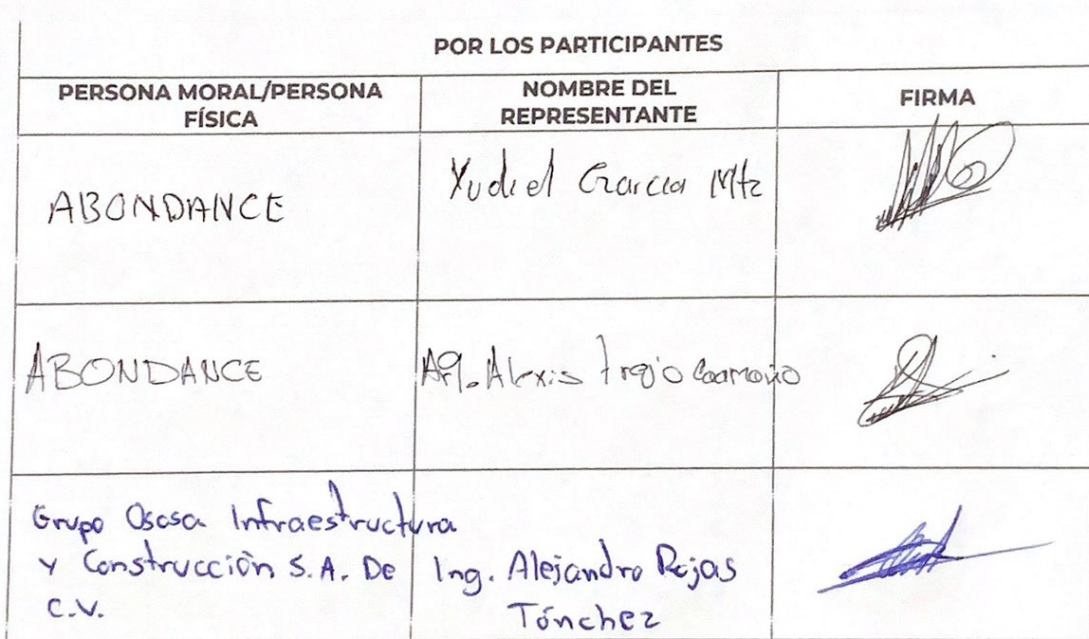 POR LOS PARTICIPANTES
PERSONA MORAL/PERSONA FÍSICA
NOMBRE DEL REPRESENTANTE
FIRMA
ABONDANCE
Yudiel Garcia Mtz
ABONDANCE
Alexis Trejo
Grupo Ososa Infraestructura
y Construcción S.A. De
C.V.
Ing. Alejandro Rojas
Tónchez